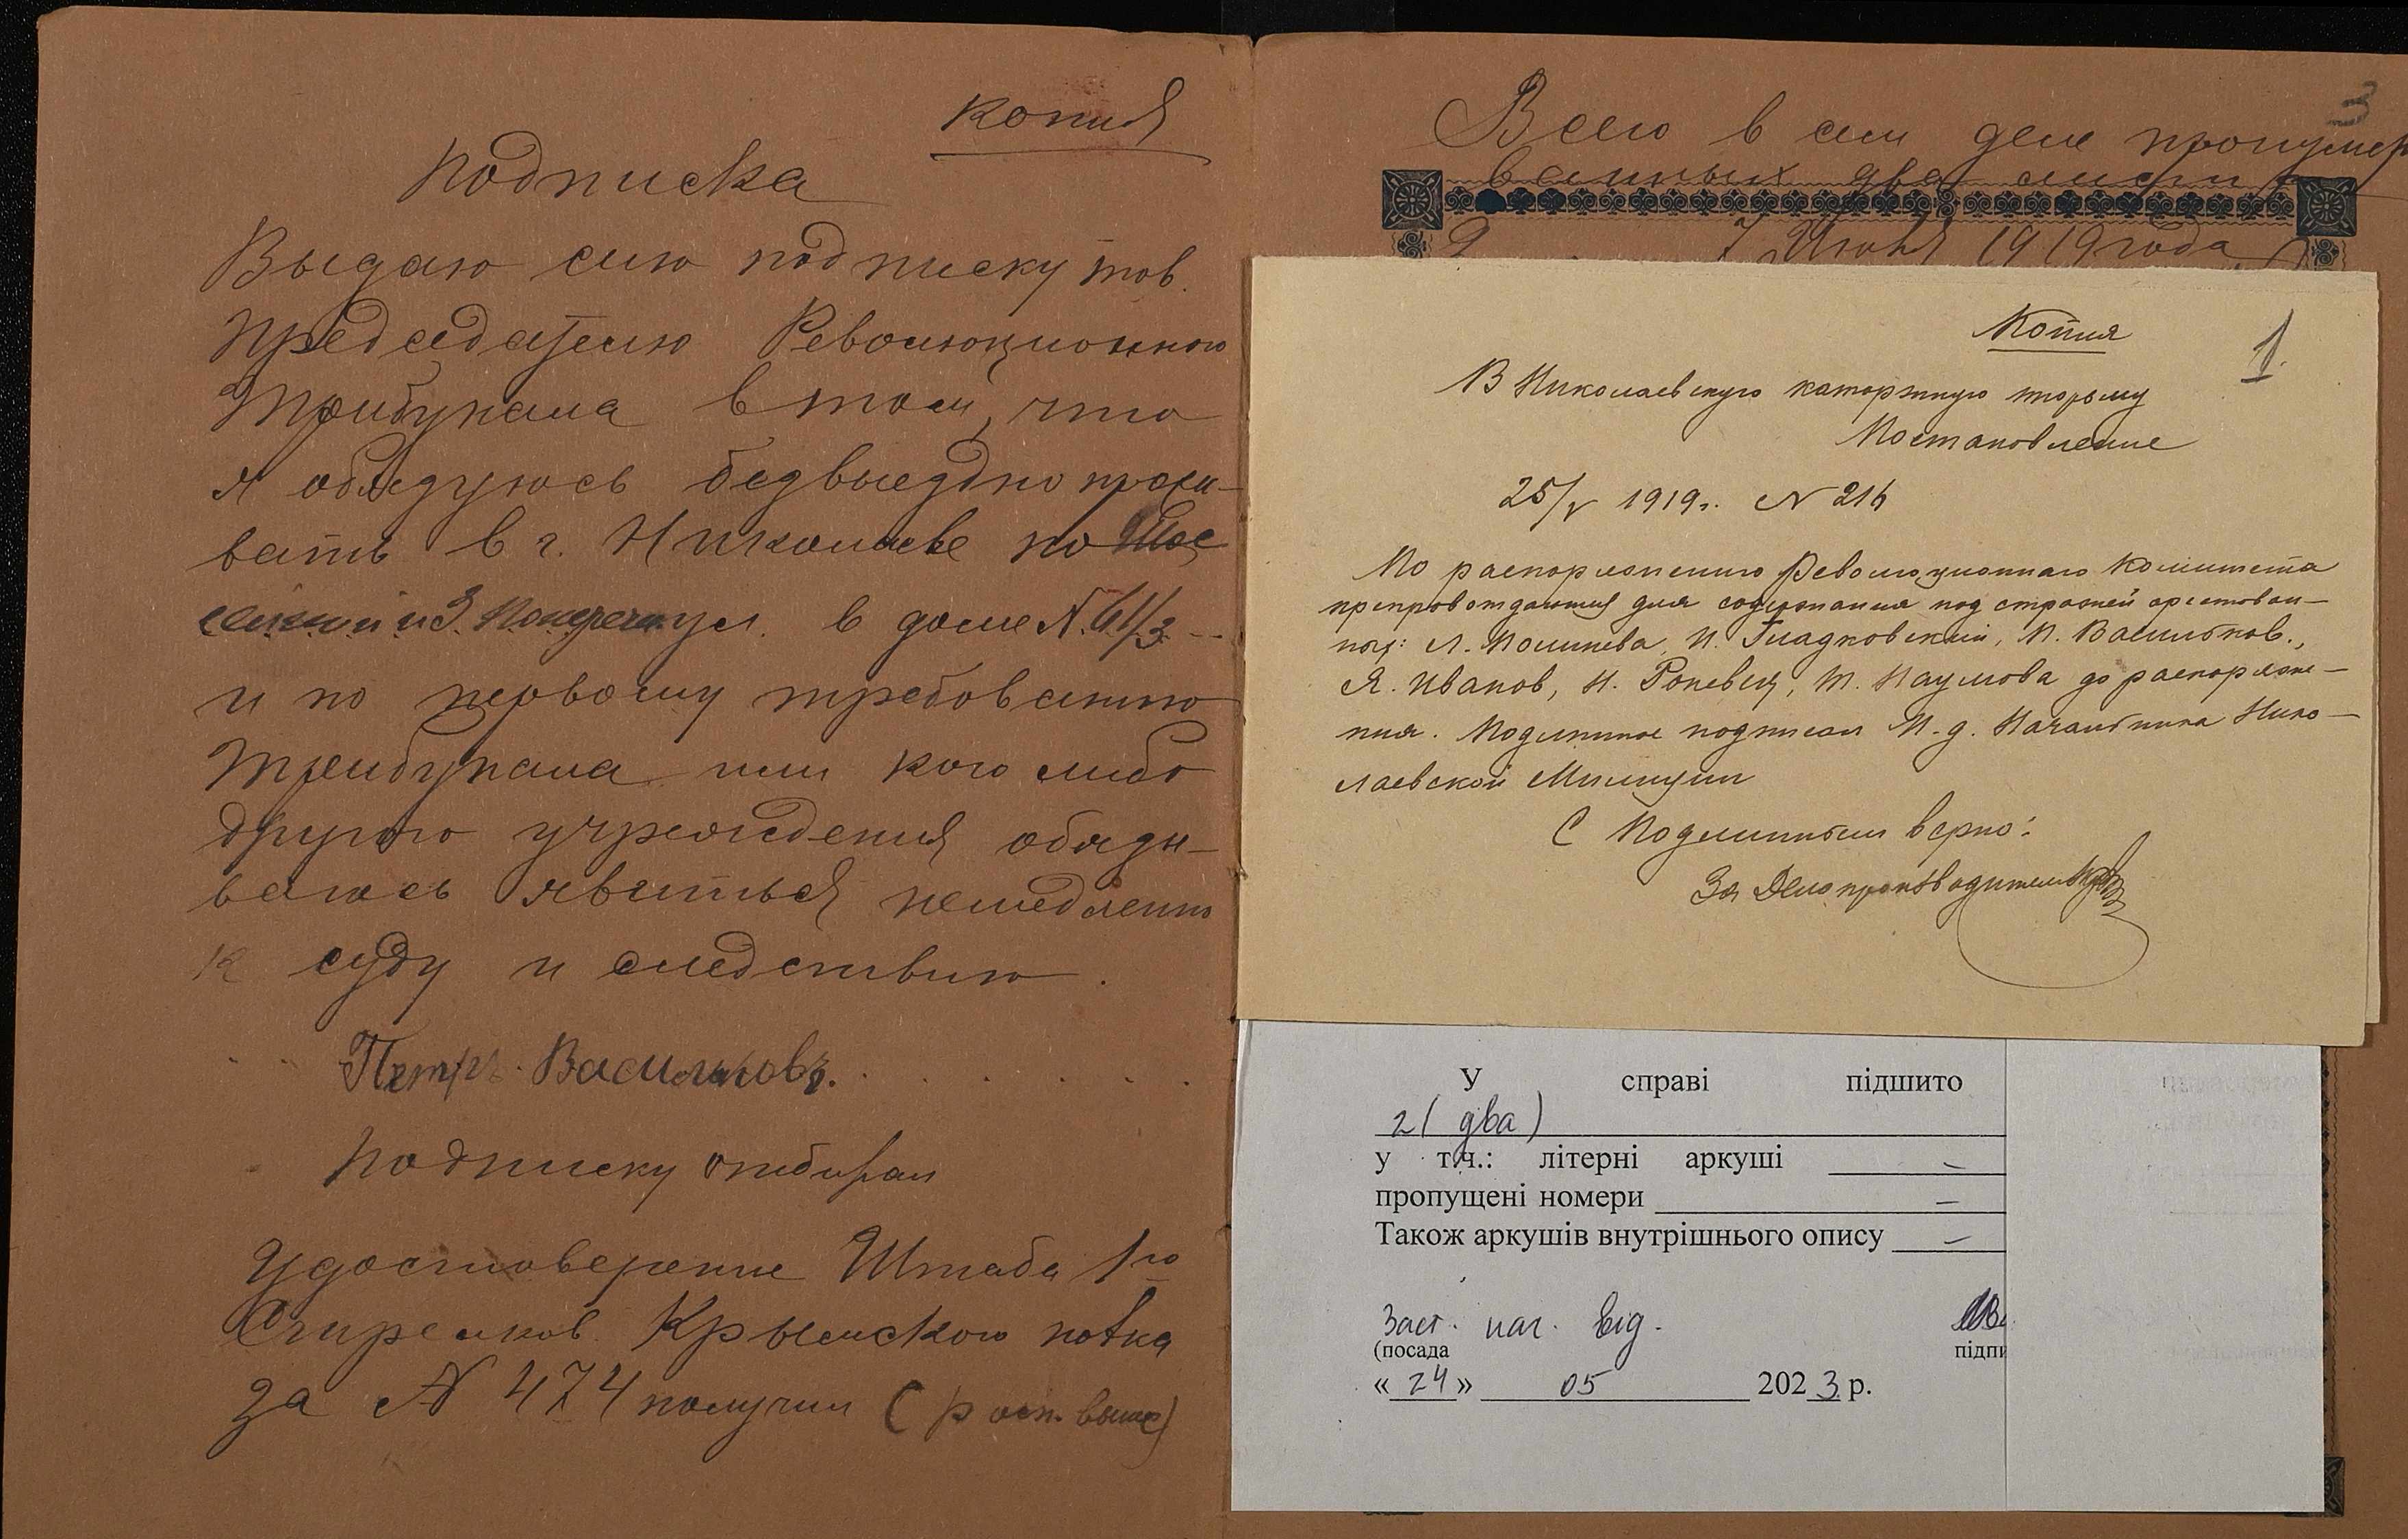 копия
Подписка
Выдаю сию подписку тов.
Председателю Революционного
Трибунала в том, что
я обязуюсь безвыездно прожи-
вать в г. Николаеве по
и 3. Попереч. ул. в доме N. 61/3
и по первому требованию
Трибунала или кого либо
другого учреждения обязы-
ваюсь явиться немедленно
к суду и следствию.
Петръ Васильковъ.
Подписку отбирал
Удостоверение Штаба 1го
Стрелков. Крымского полка
за N 474 получил (росп. выше)
3
Всего в сем деле пронумеро
ванных два листа
2
7 Июня 1919 года
Копия
1.
В Николаевскую каторжную тюрьму
Постановление
25/V 1919г. N 216
По распоряжению Революционнаго Комитета
препровождаются для содержания под стражей арестован-
ных: Л. Полинева, И. Гладковский, П. Васильков.,
Я. Иванов, Н. Роневец, Т. Наумова до распоряже-
ния. Подлинное подписал И.д. Начальника Нико-
лаевской Милиции
С Подлинным верно:
За Делопроизводителя
У справі підшито
2 ( два )
у т.ч.: літерні аркуші –
пропущені номери –
Також аркушів внутрішнього опису –
Заст. нач. від.
(посада підпи
« 24 » 05 2023 р.